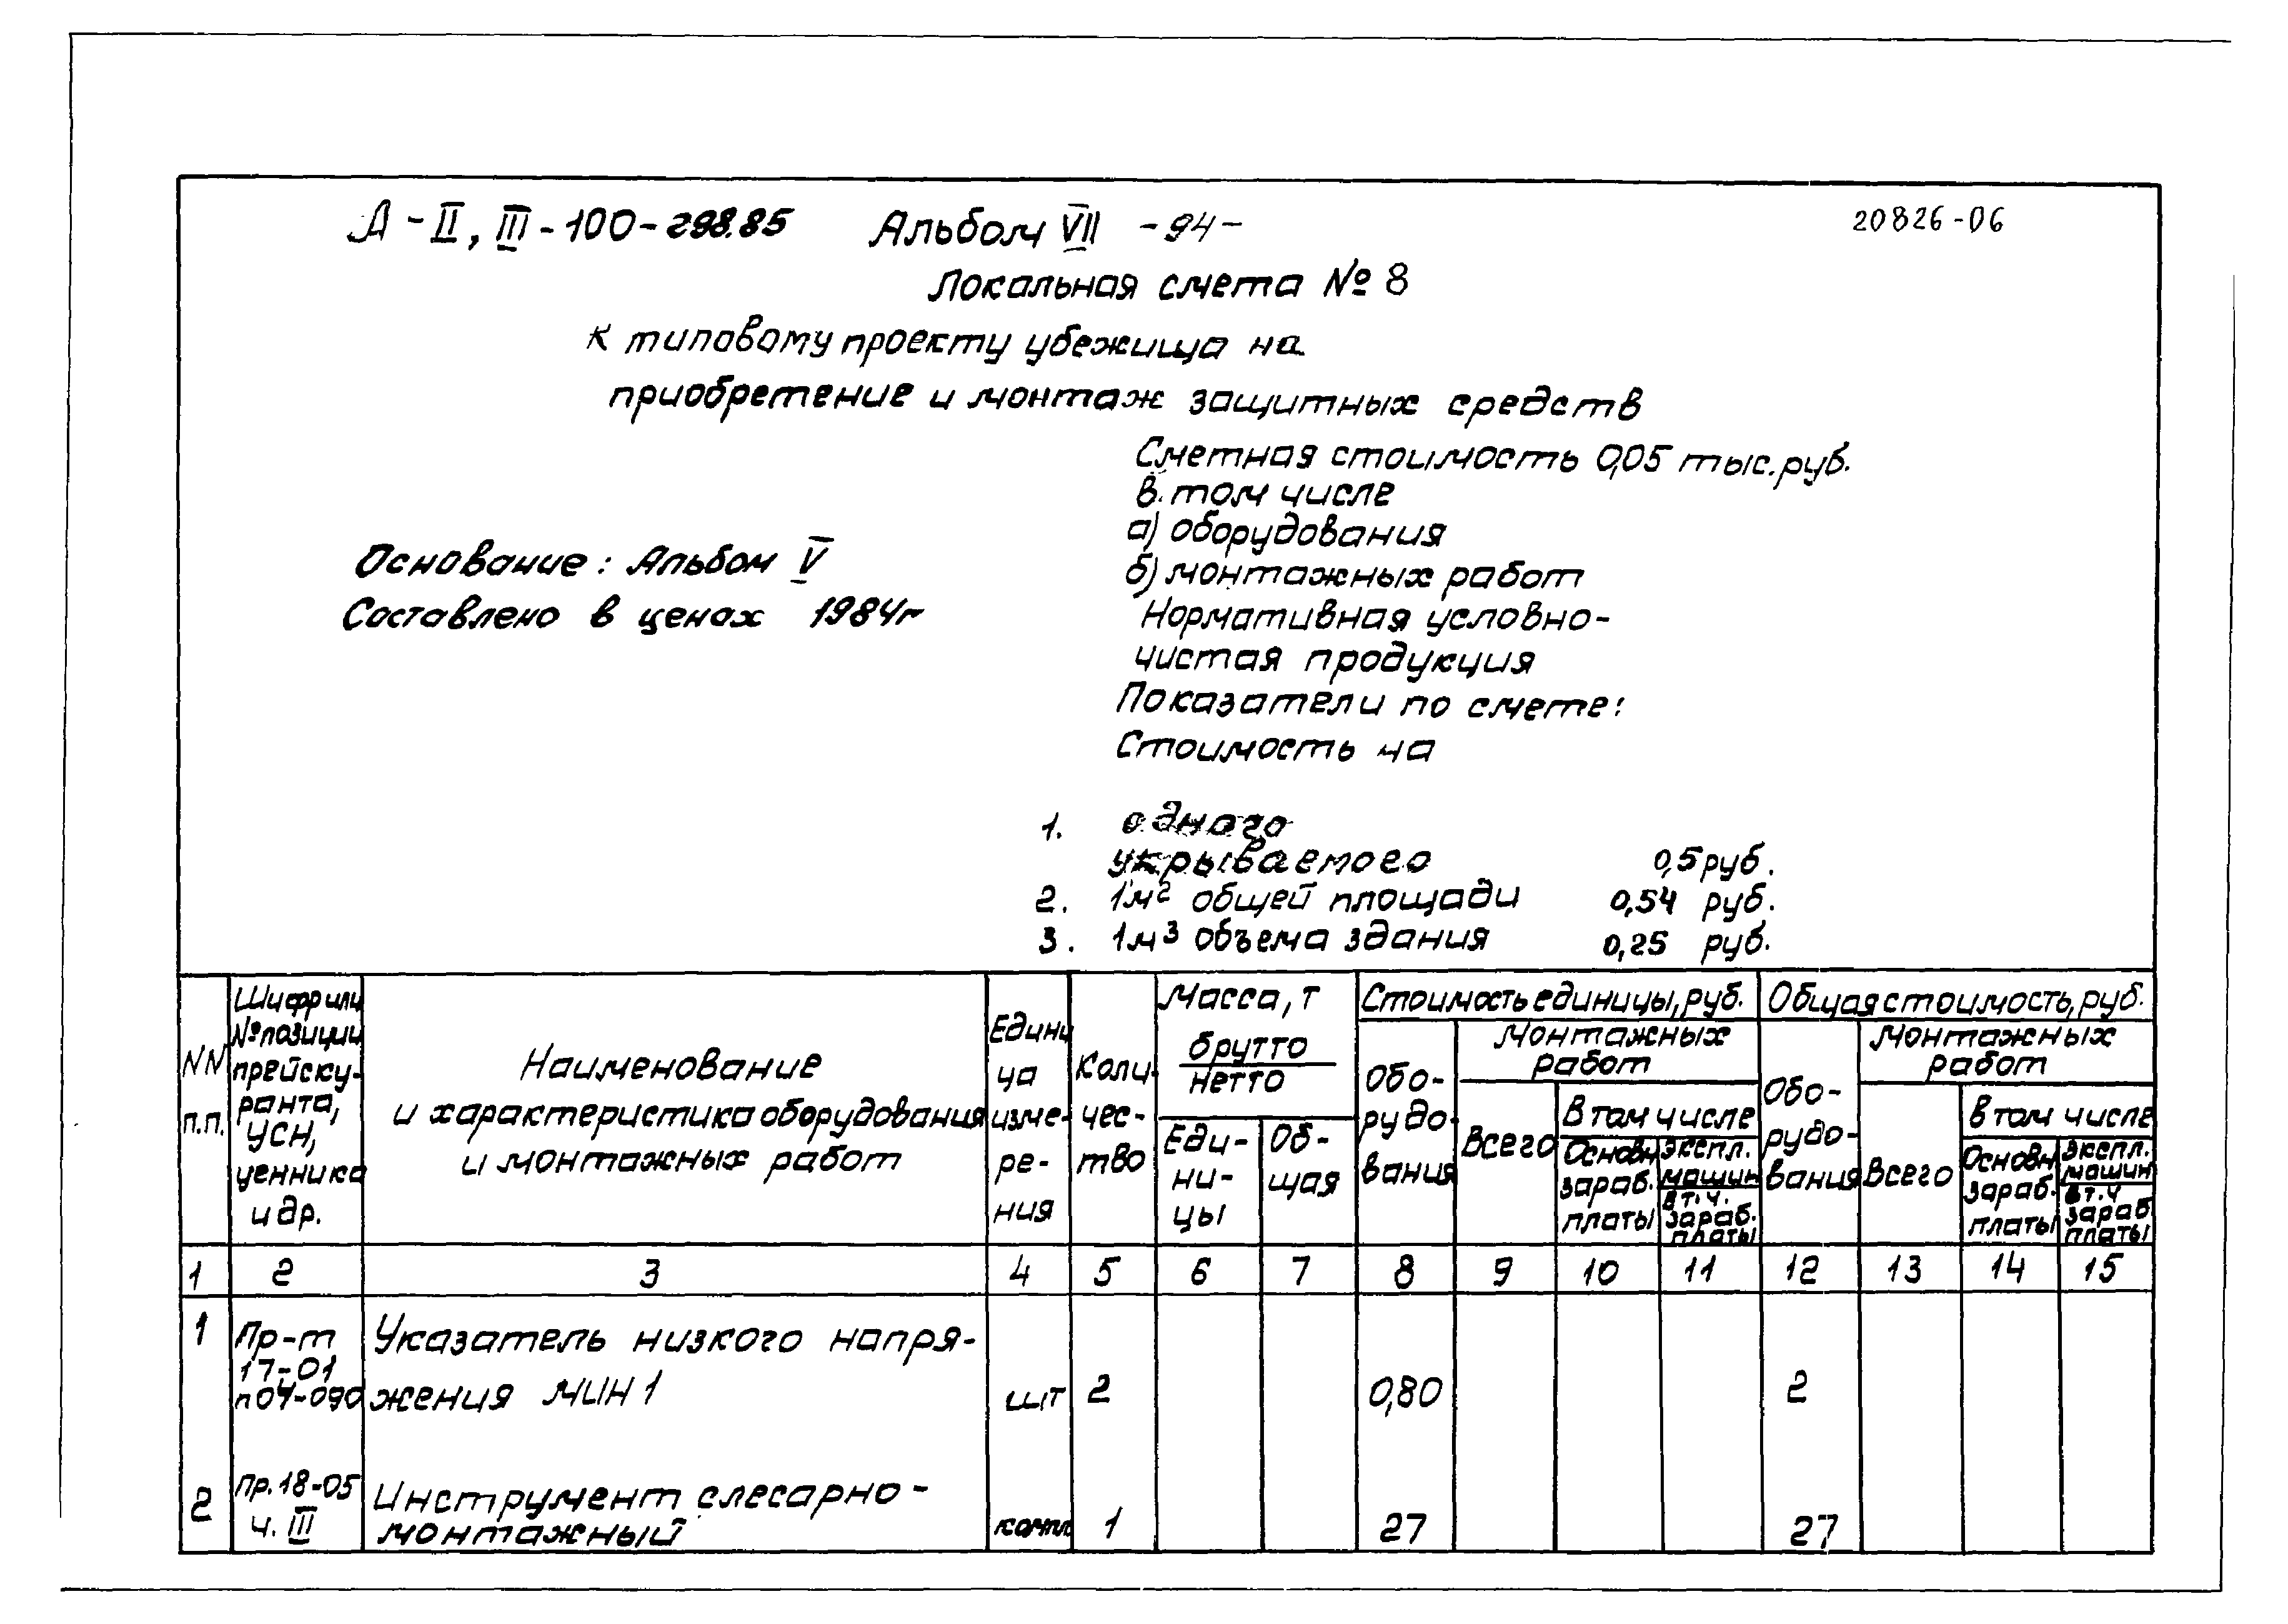 А-II, III-100-298.85 Альбом VII -94- 20826-06
Локальная смета № 8
к типовому проекту убежища на
приобретение и монтаж защитных средств
Сметная стоимость 0,05 тыс.руб.
в том числе
а) оборудования
б) монтажных работ
Основание: Альбом V
Составлено в ценах 1984г
Нормативная условно-
чистая продукция
Показатели по смете:
Стоимость на
1. одного
укрываемого 0,5 руб.
2. 1м² общей площади 0,54 руб.
3. 1м³ объема здания 0,25 руб.
NN
п.п.
Шифр или
№ позиции
прейску-
ранта,
УСН,
ценника
и др.
Наименование
и характеристика оборудования
и монтажных работ
Едини
ца
изме-
ре-
ния
Коли-
чес-
тво
Масса, т
брутто
нетто
Еди-
ни-
цы
Об-
щая
Стоимость единицы, руб.
Обо-
рудо-
вания
Монтажных
работ
Всего
В том числе
Основн
зараб.
платы
экспл.
машин
в т.ч.
зараб.
платы
Общая стоимость, руб.
Обо-
рудо-
вания
Монтажных
работ
Всего
В том числе
Основн
зараб.
платы
экспл.
машин
в т.ч
зараб
платы
1 2 3 4 5 6 7 8 9 10 11 12 13 14 15
1 Пр-т Указатель низкого напря-
17-01
п04-090 жения МИН 1 шт 2 0,80 2
2 Пр. 18-05 Инструмент слесарно-
ч. III монтажный компл 1 27 27